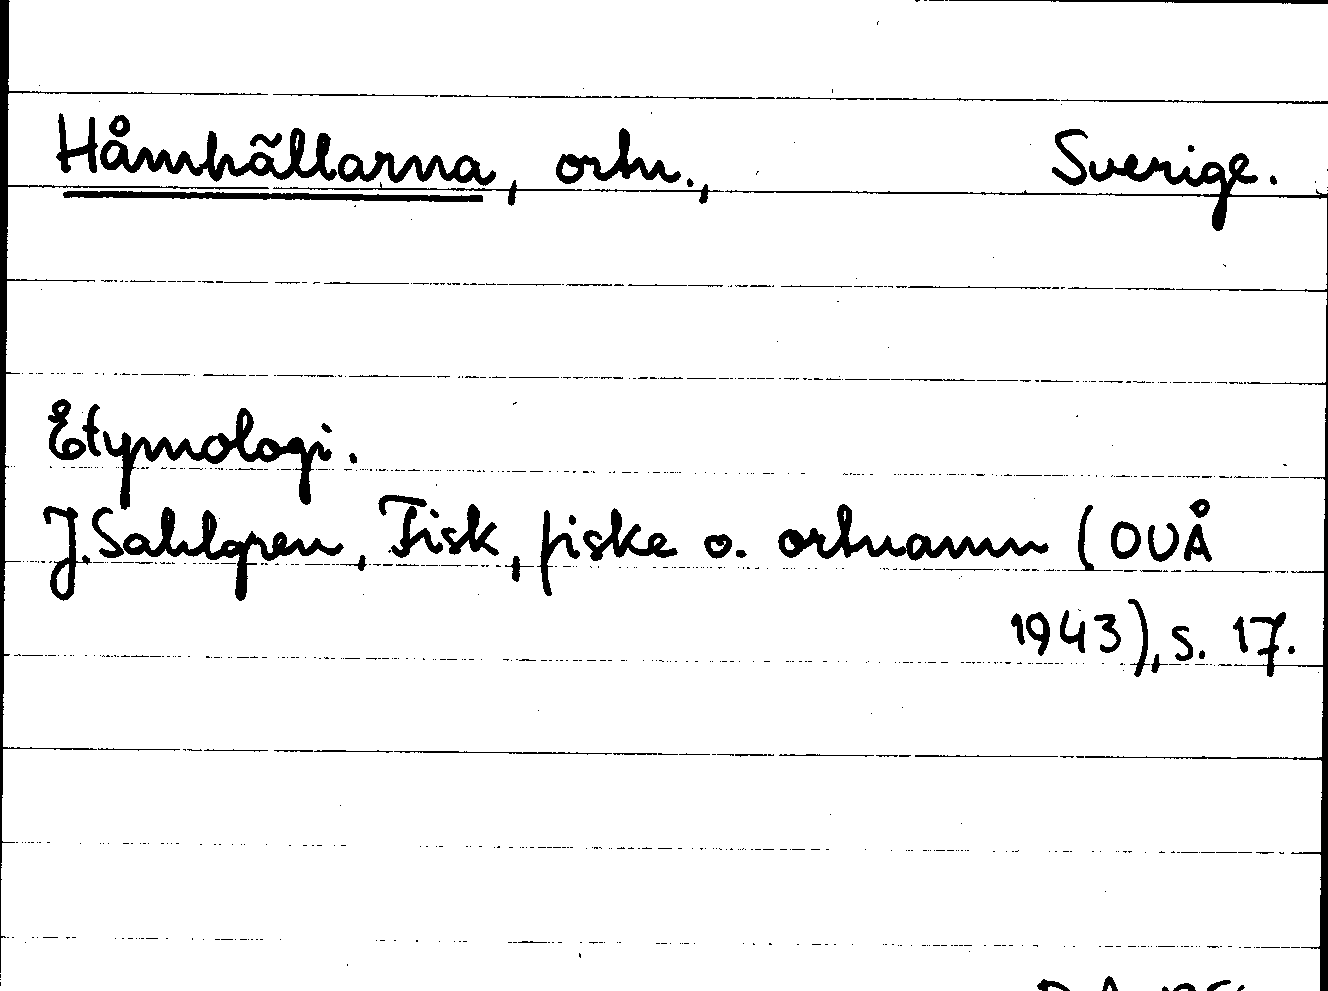 Håmhällarna, ortn., Sverige.
Etymologi.
J. Sahlgren, Fisk, fiske o. ortnamn (OUÅ
1943), s. 17.